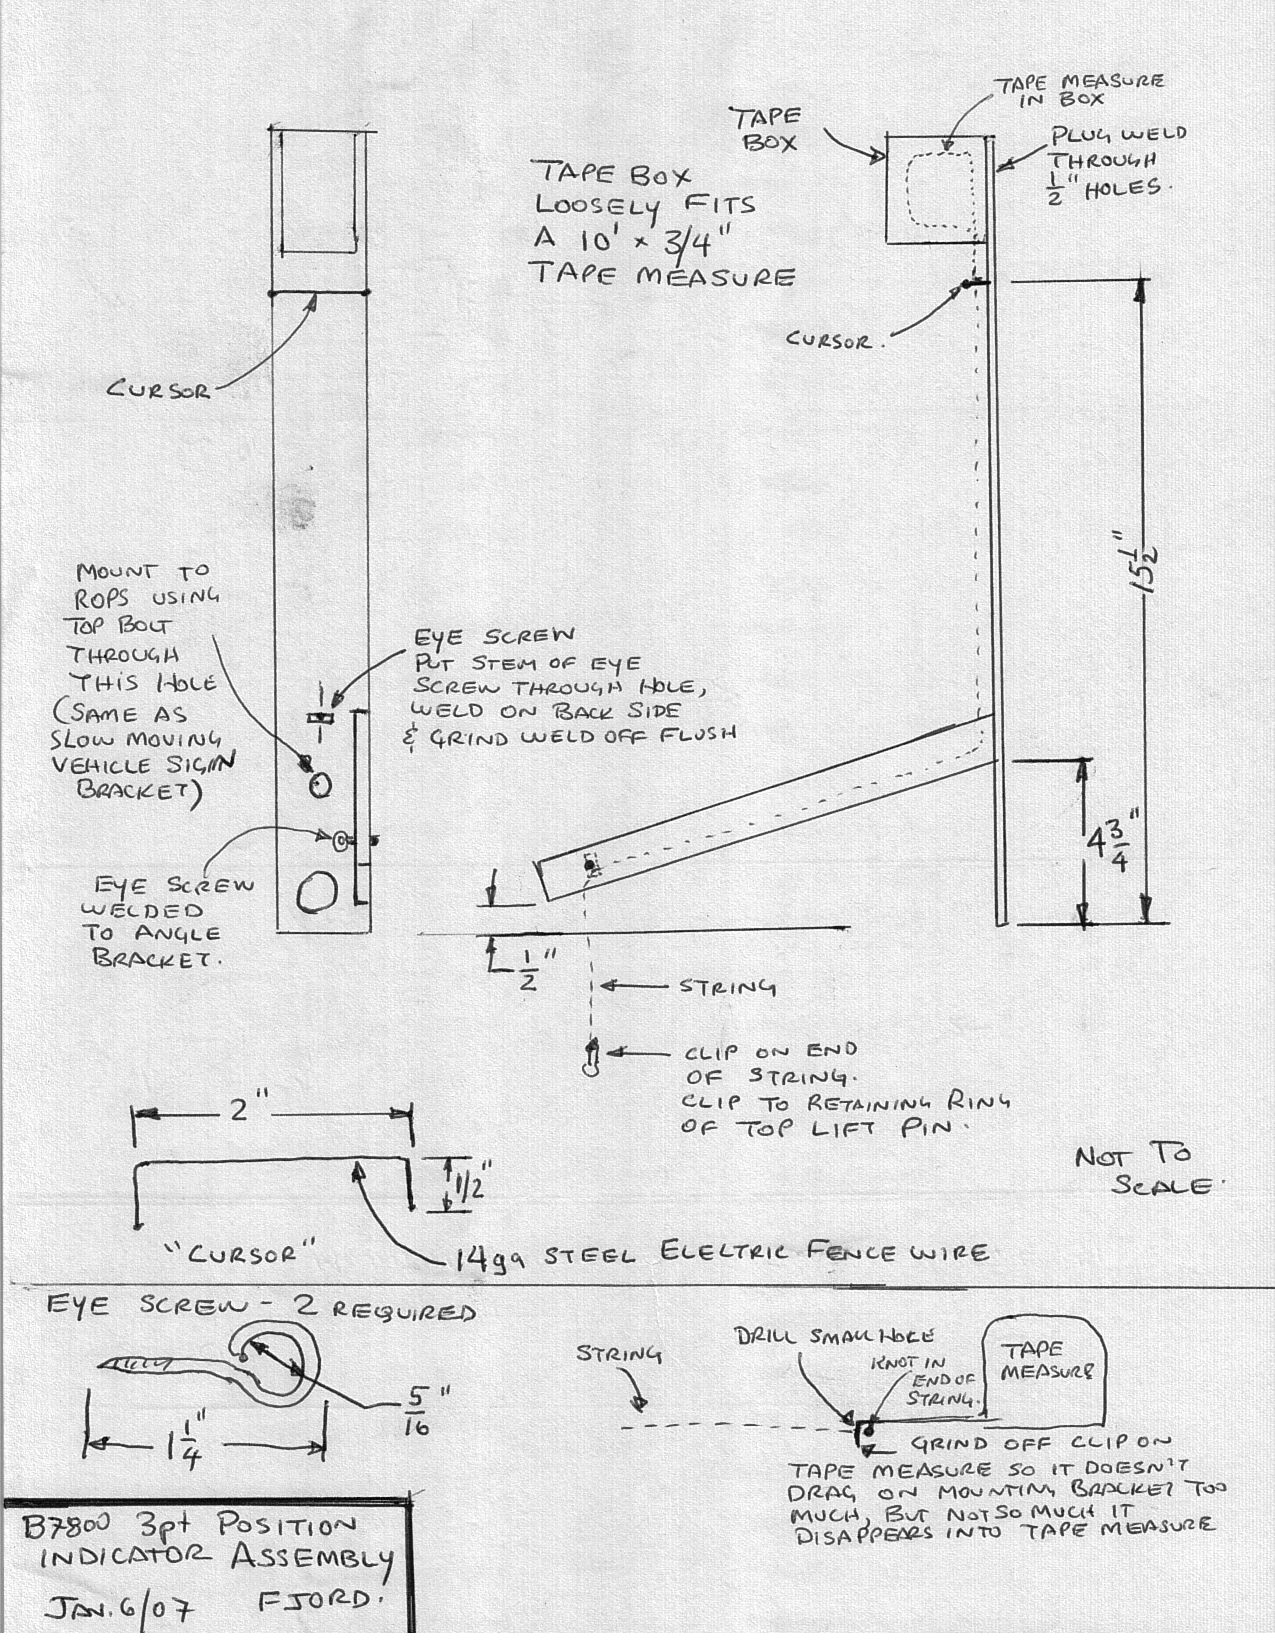 TAPE MEASURE
IN BOX
TAPE
BOX
PLUG WELD
THROUGH
1/2" HOLES.
TAPE BOX
LOOSELY FITS
A 10' x 3/4"
TAPE MEASURE
CURSOR.
CURSOR
15 1/2"
MOUNT TO
ROPS USING
TOP BOLT
THROUGH
THIS HOLE
(SAME AS
SLOW MOVING
VEHICLE SIGN
BRACKET)
EYE SCREW
PUT STEM OF EYE
SCREW THROUGH HOLE,
WELD ON BACK SIDE
& GRIND WELD OFF FLUSH
4 3/4"
EYE SCREW
WELDED
TO ANGLE
BRACKET.
1/2"
STRING
CLIP ON END
OF STRING.
CLIP TO RETAINING RING
OF TOP LIFT PIN.
2"
1/2"
NOT TO
SCALE.
"CURSOR"
14ga STEEL ELECTRIC FENCE WIRE
EYE SCREW - 2 REQUIRED
5/16"
1 1/4"
STRING
DRILL SMALL HOLE
KNOT IN
END OF
STRING.
TAPE
MEASURE
GRIND OFF CLIP ON
TAPE MEASURE SO IT DOESN'T
DRAG ON MOUNTING BRACKET TOO
MUCH, BUT NOT SO MUCH IT
DISAPPEARS INTO TAPE MEASURE
B7800 3pt POSITION
INDICATOR ASSEMBLY
JAN. 6/07 FJORD.